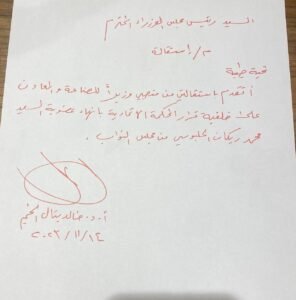 السيد رئيس مجلس الوزراء المحترم
م / استقالة
تحية طيبة
أتقدم باستقالتي من منصبي وزيراً للصناعة والمعادن
على خلفية قرار المحكمة الاتحادية بانهاء عضوية السيد
محمد ريكان الحلبوسي من مجلس النواب .
أ.د. خالد بتال النجم
٢٠٢٣/١١/١٤